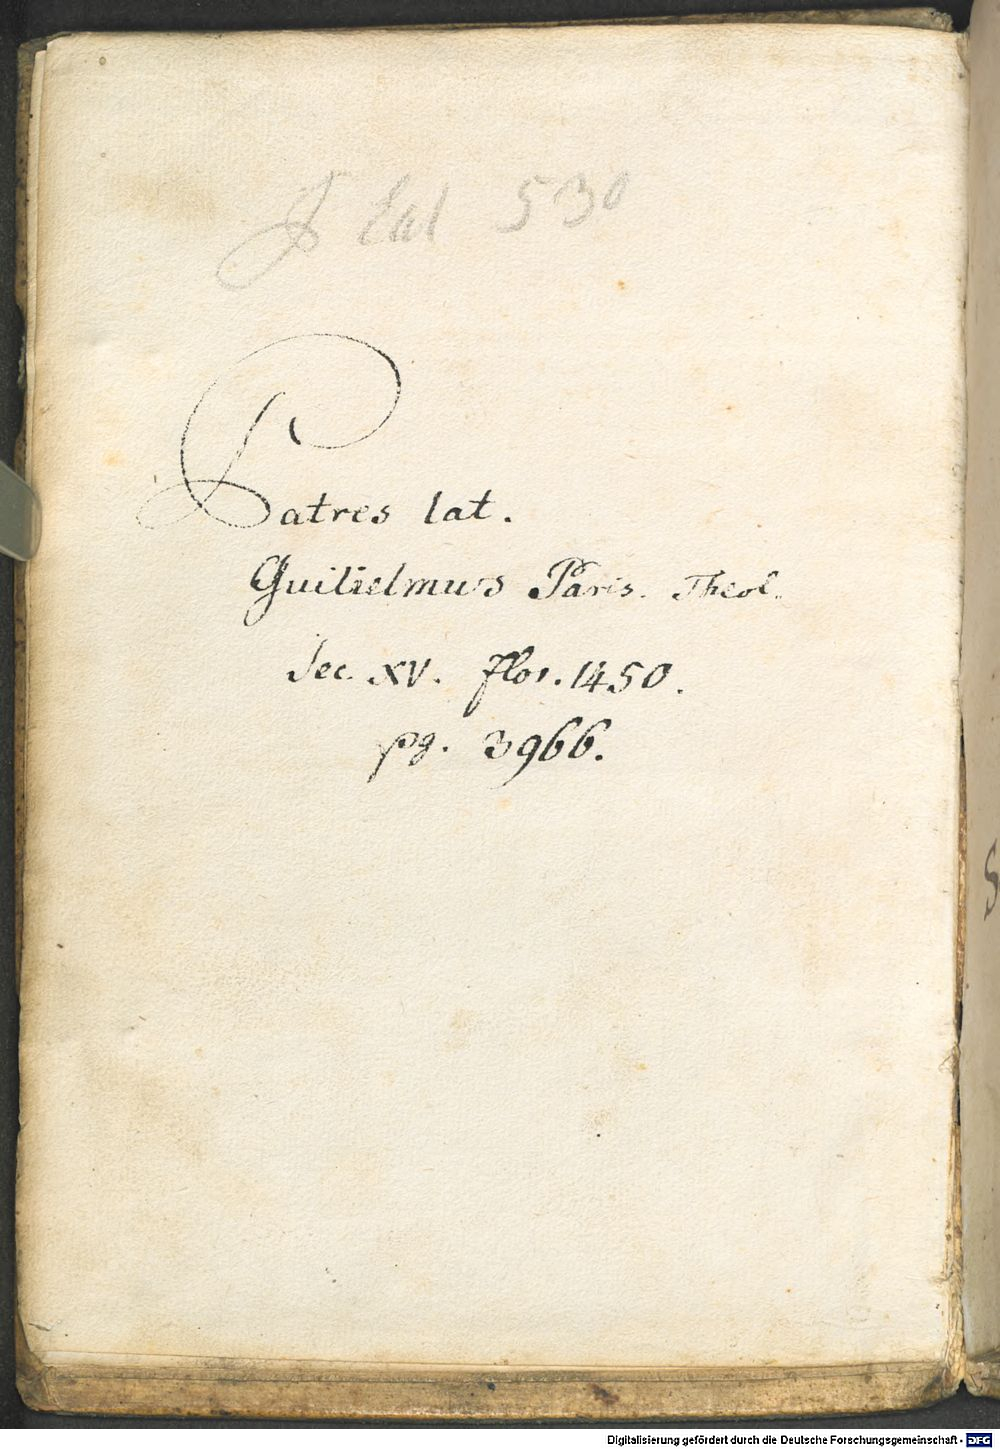 P lat 530
Patres lat.
Guilielmus Paris. Theol.
Sec. XV. flor. 1450.
pg. 3966.
Digitalisierung gefördert durch die Deutsche Forschungsgemeinschaft - DFG